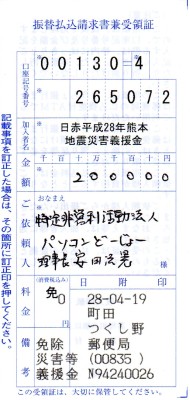 振替払込請求書兼受領証
口座記号番号
00130-4
265072
加入者名
日赤平成28年熊本
地震災害義援金
金額
千百十万千百十円
200000
ご依頼人
おなまえ
特定非営利活動法人
パソコンどーじょー
理事長 安田法光
料金
(消費税込み)
免 0
日附印
28-04-19
町田
つくし野
郵便局
(00835)
N94240026
備考
免除
災害等
義援金
記載事項を訂正した場合は、その箇所に訂正印を押してください。
この受領証は、大切に保管してください。